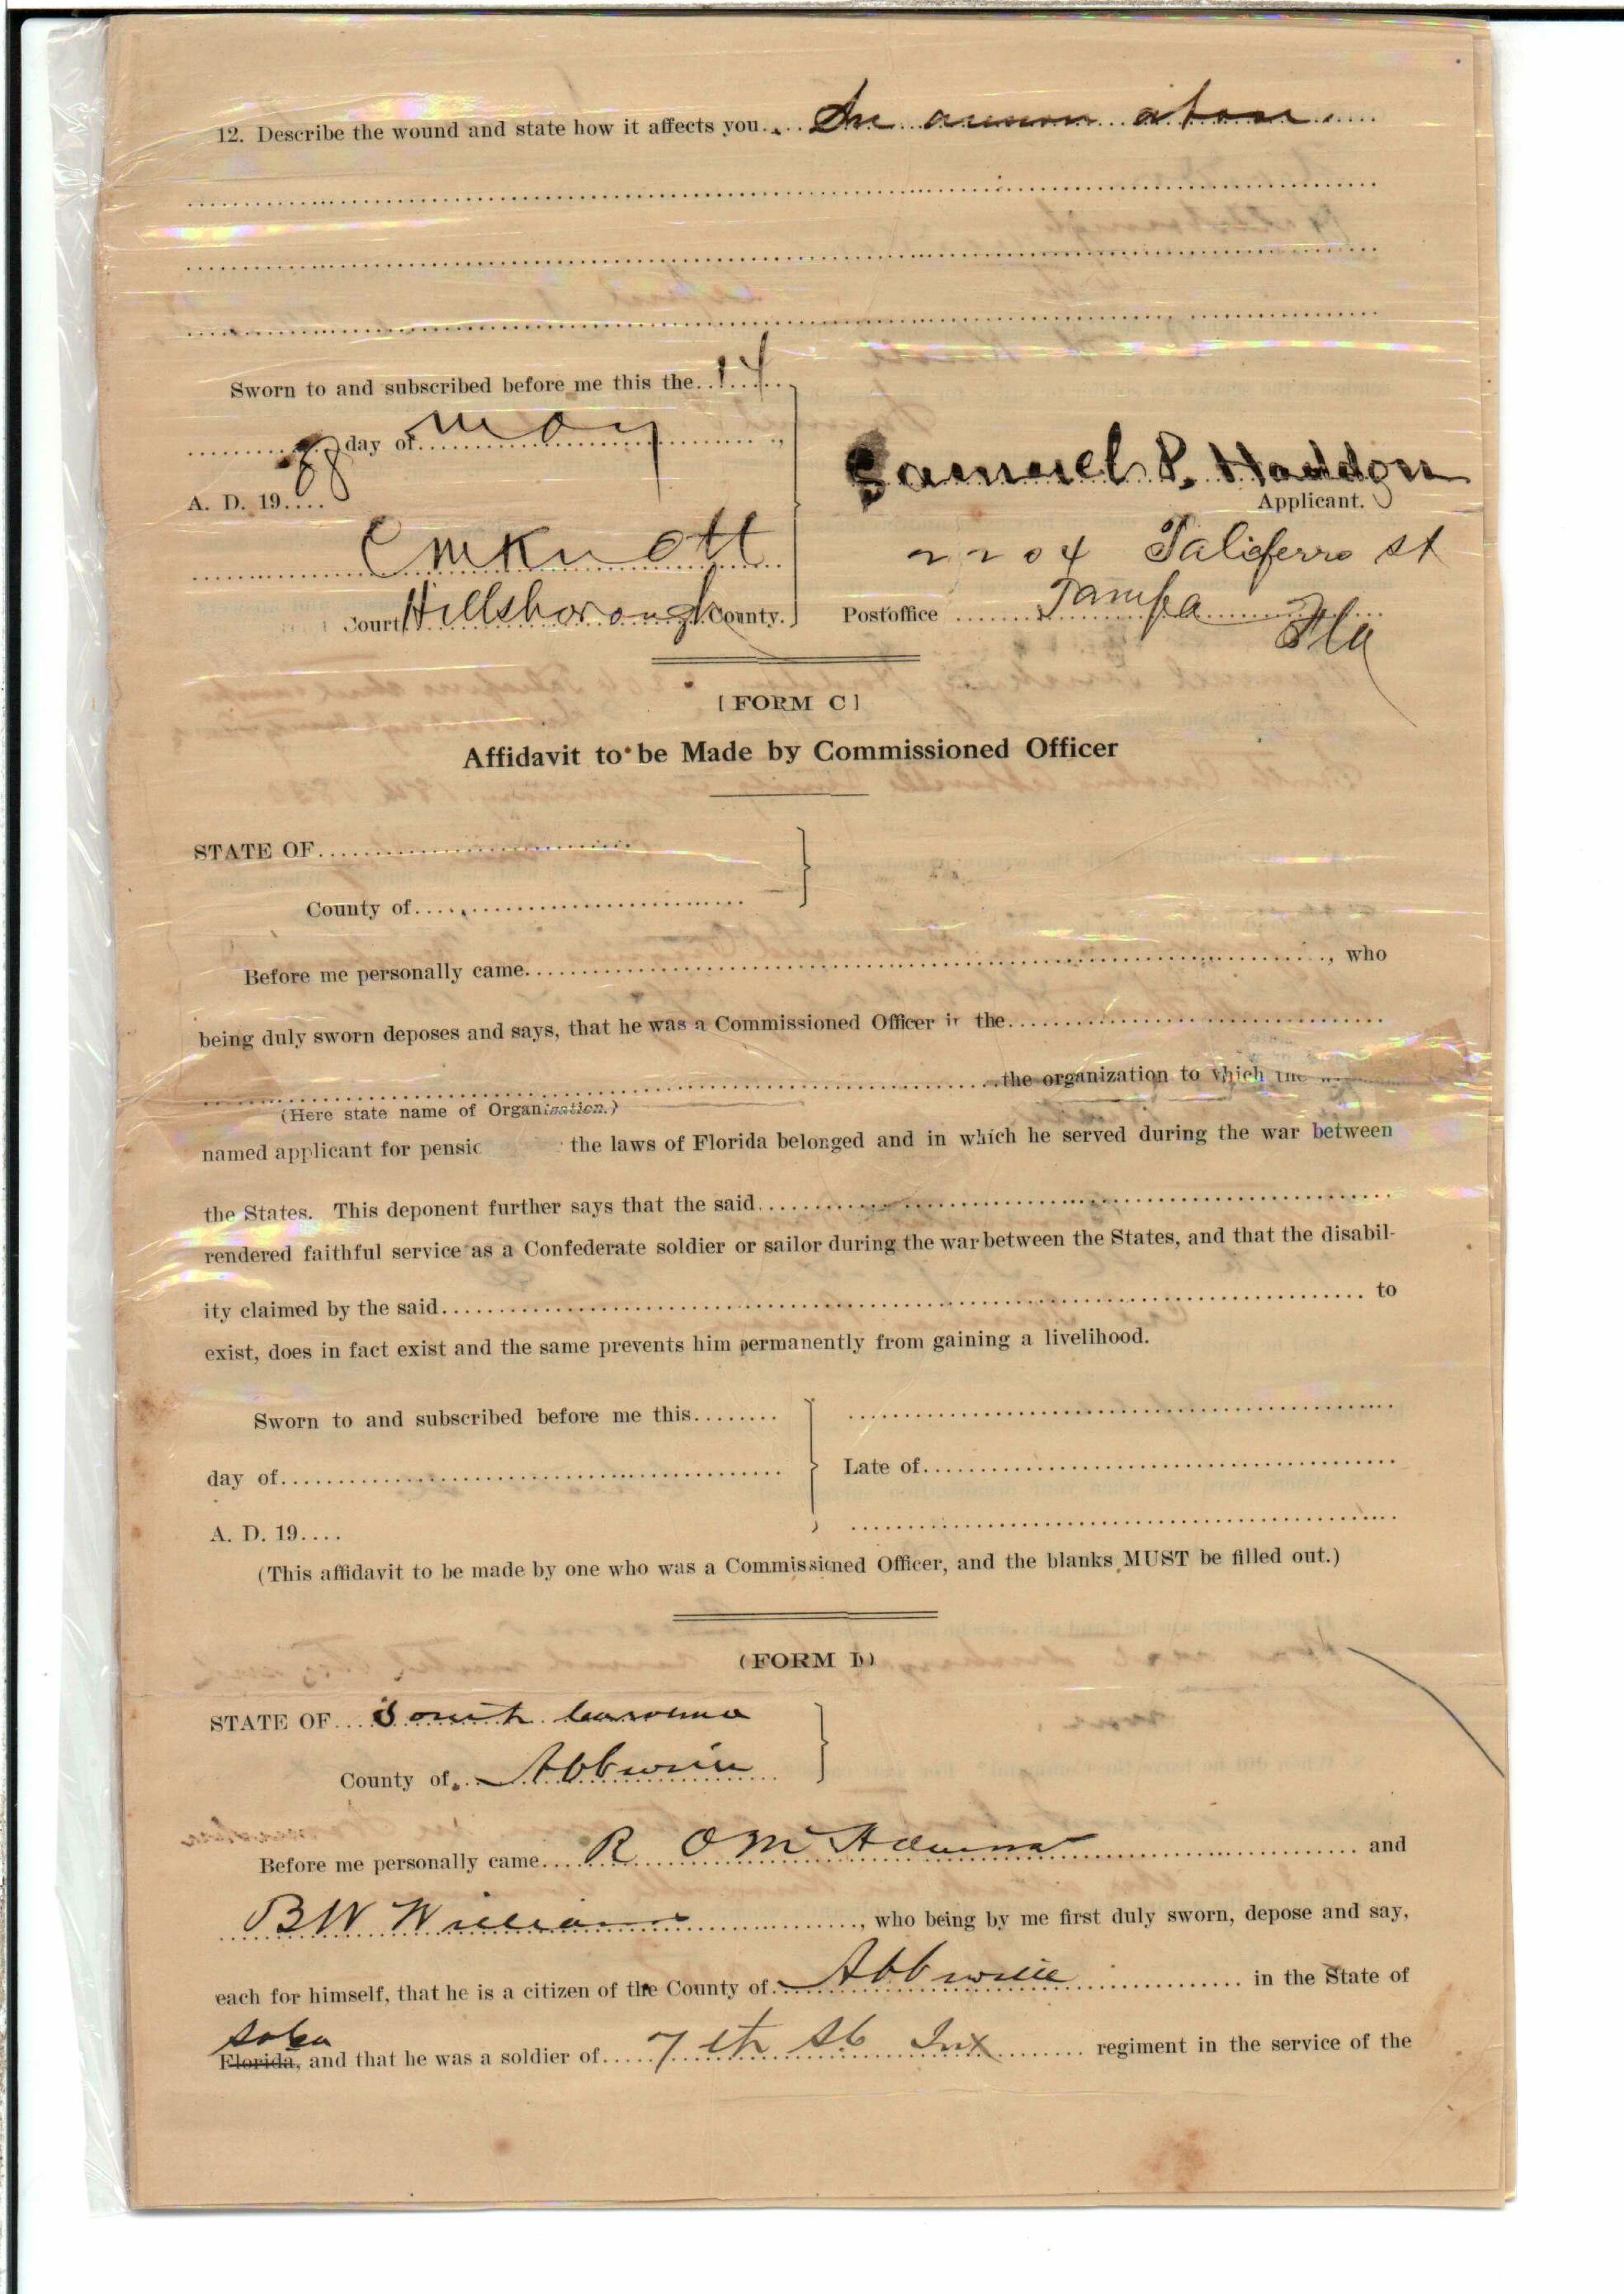 12. Describe the wound and state how it affects you.... See answer above.....
Sworn to and subscribed before me this the..14..
day of May
A. D. 19....08
Samuel P. Haddon
Applicant.
C M Knott
2204 Taliferro St
Court Hillsborough County.
Postoffice Tampa Fla
[FORM C]
Affidavit to be Made by Commissioned Officer
STATE OF
County of
Before me personally came, who
being duly sworn deposes and says, that he was a Commissioned Officer in the
the organization to which the
(Here state name of Organization.)
named applicant for pensic the laws of Florida belonged and in which he served during the war between
the States. This deponent further says that the said
rendered faithful service as a Confederate soldier or sailor during the war between the States, and that the disabil-
ity claimed by the said to
exist, does in fact exist and the same prevents him permanently from gaining a livelihood.
Sworn to and subscribed before me this
day of
Late of
A. D. 19....
(This affidavit to be made by one who was a Commissioned Officer, and the blanks MUST be filled out.)
(FORM D)
STATE OF South Carolina
County of Abbeville
Before me personally came R O McAdams and
B W Williams, who being by me first duly sworn, depose and say,
each for himself, that he is a citizen of the County of Abbeville in the State of
So Ca
Florida, and that he was a soldier of 7th SC Inf regiment in the service of the